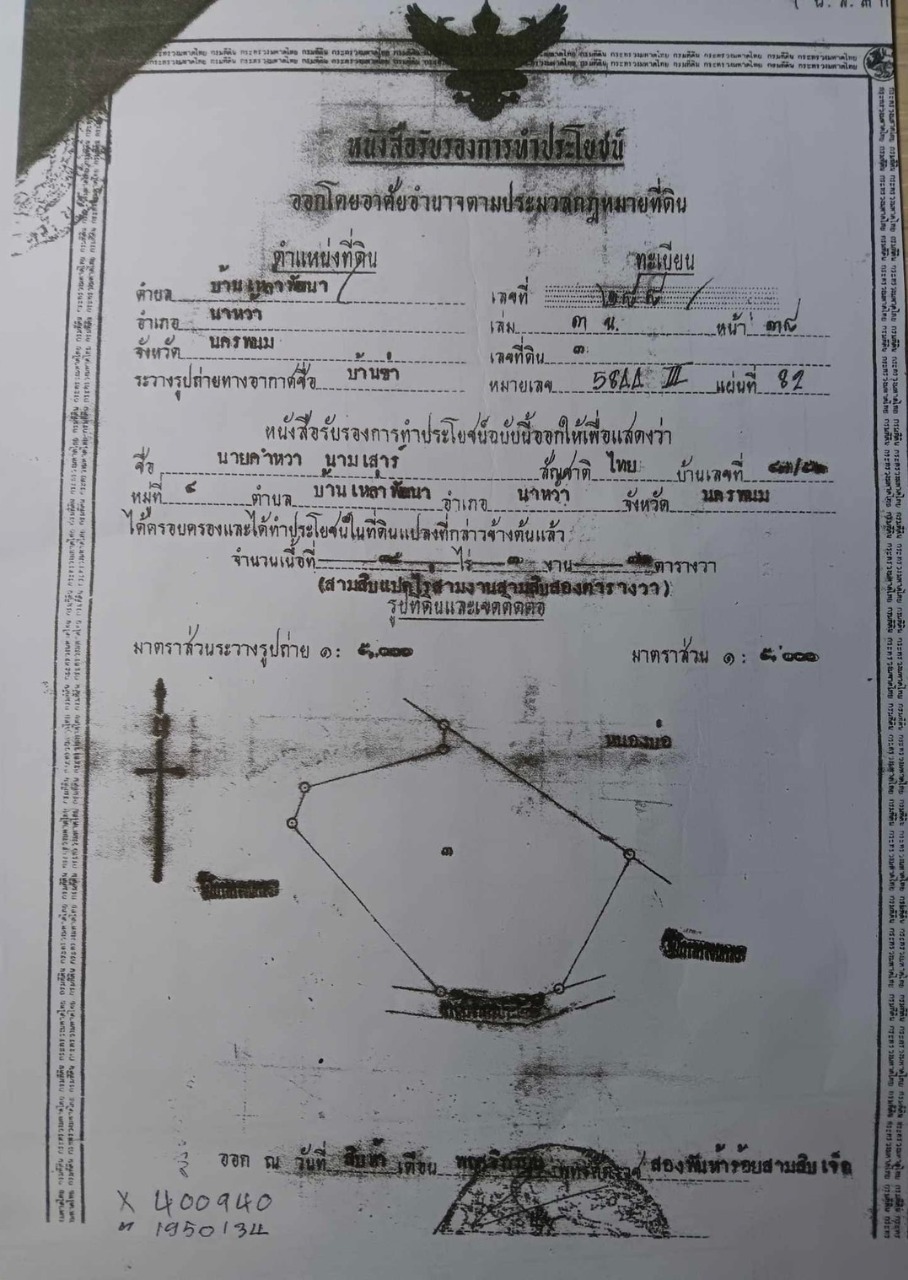 (น.ส.๓ ก
กระทรวงมหาดไทย กรมที่ดิน กระทรวงมหาดไทย กรมที่ดิน กระทรวงมหาดไทย กรมที่ดิน
หนังสือรับรองการทำประโยชน์
ออกโดยอาศัยอำนาจตามประมวลกฎหมายที่ดิน
ตำแหน่งที่ดิน
ทะเบียน
ตำบล บ้านเหล่าพัฒนา
เลขที่
อำเภอ นาหว้า
เล่ม ๓ น. หน้า ๓๘
จังหวัด นครพนม
เลขที่ดิน ๓
ระวางรูปถ่ายทางอากาศชื่อ บ้านข่า
หมายเลข 5844 III แผ่นที่ 82
หนังสือรับรองการทำประโยชน์ฉบับนี้ออกให้เพื่อแสดงว่า
ชื่อ นายคำหวา นามเสาร์ สัญชาติ ไทย บ้านเลขที่
หมู่ที่ ๔ ตำบล บ้านเหล่าพัฒนา อำเภอ นาหว้า จังหวัด นครพนม
ได้ครอบครองและได้ทำประโยชน์ในที่ดินแปลงที่กล่าวข้างต้นแล้ว
จำนวนเนื้อที่ ๓๘ ไร่ ๓ งาน ๓๒ ตารางวา
(สามสิบแปดไร่สามงานสามสิบสองตารางวา)
รูปที่ดินและเขตติดต่อ
มาตราส่วนระวางรูปถ่าย ๑ : ๕,๐๐๐
มาตราส่วน ๑ : ๕,๐๐๐
หนองบ่อ
๓
ออก ณ วันที่ สิบห้า เดือน พฤศจิกายน พุทธศักราช สองพันห้าร้อยสามสิบเจ็ด
X 400940
1950134